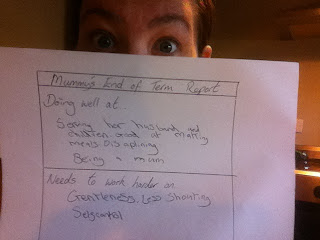 Mummy's End of Term Report
Doing well at
Serving her husband and
children Good at making
meals. Disaplining
Being a mum
Needs to work harder on
Gentleness. Less Shouting
Selfcontrol